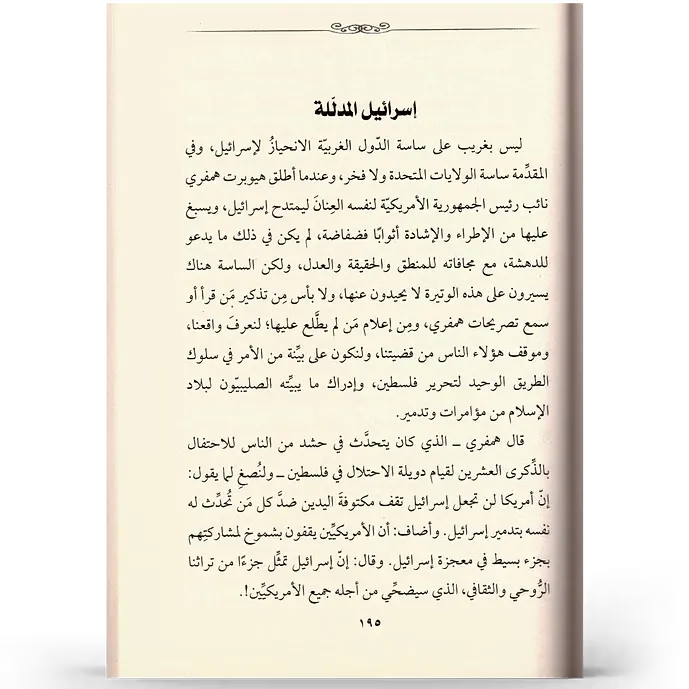 إسرائيل المدلّلة
ليس بغريب على ساسة الدّول الغربيّة الانحيازُ لإسرائيل، وفي
المقدِّمة ساسة الولايات المتحدة ولا فخر، وعندما أطلق هيوبرت همفري
نائب رئيس الجمهورية الأمريكيّة لنفسه العِنانَ ليمتدح إسرائيل، ويسبغ
عليها من الإطراء والإشادة أثوابًا فضفاضة، لم يكن في ذلك ما يدعو
للدهشة، مع مجافاته للمنطق والحقيقة والعدل، ولكن الساسة هناك
يسيرون على هذه الوتيرة لا يحيدون عنها، ولا بأس مِن تذكير مَن قرأ أو
سمع تصريحات همفري، ومِن إعلام مَن لم يطَّلع عليها؛ لنعرفَ واقعنا،
وموقف هؤلاء الناس من قضيتنا، ولنكون على بيِّنة من الأمر في سلوك
الطريق الوحيد لتحرير فلسطين، وإدراك ما يبيِّته الصليبيّون لبلاد
الإسلام من مؤامرات وتدمير.
قال همفري ــ الذي كان يتحدَّث في حشد من الناس للاحتفال
بالذِّكرى العشرين لقيام دويلة الاحتلال في فلسطين ــ ولنُصغِ لما يقول:
إنّ أمريكا لن تجعل إسرائيل تقف مكتوفةَ اليدين ضدَّ كل مَن تُحدِّث له
نفسه بتدمير إسرائيل. وأضاف: أن الأمريكيِّين يقفون بشموخ لمشاركتِهم
بجزء بسيط في معجزة إسرائيل. وقال: إنّ إسرائيل تمثِّل جزءًا من تراثنا
الرُّوحي والثقافي، الذي سيضحِّي من أجله جميع الأمريكيِّين!.
١٩٥